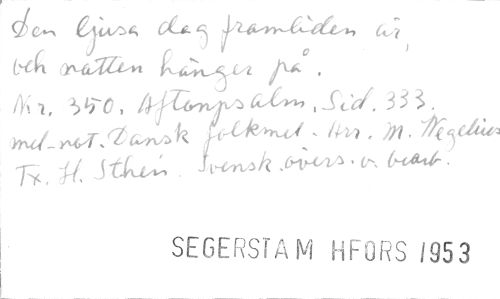 Den ljusa dag framliden är,
och natten hänger på.
Nr. 350. Aftonpsalm. Sid. 333.
mel-not. Dansk folkmel. Arr. M. Wegelius
Tx. H. Sthen. Svensk. övers. o. bearb.
SEGERSTAM HFORS 1953